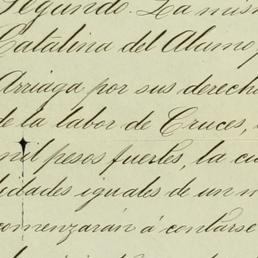 Segundo. La mism
Catalina del Alamo,
Arriaga por sus derecho
de la labor de Cruces,
mil pesos fuertes, la cu
lidades iguales de un m
comenzarán á contarse